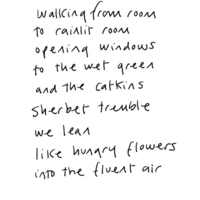 walking from room
to rainlit room
opening windows
to the wet green
and the catkins
sherbet tremble
we lean
like hungry flowers
into the fluent air